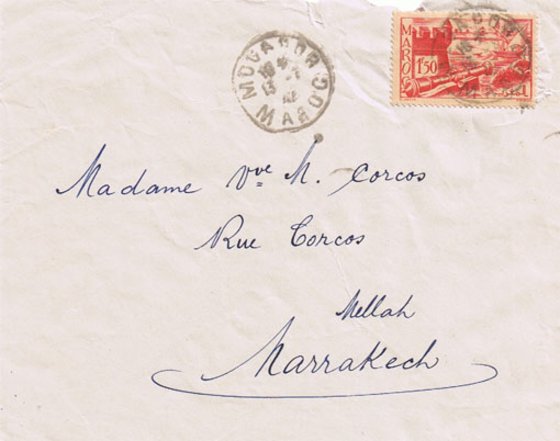 MOGADOR
MAROC
MAROC
1f50
Madame Vve M. Corcos
Rue Corcos
Mellah
Marrakech